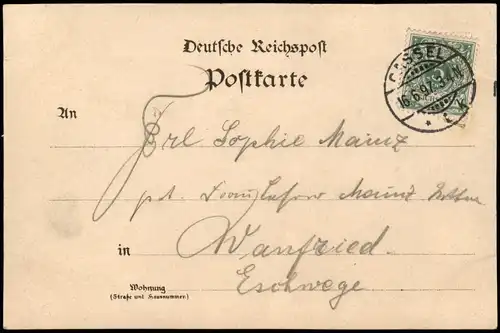 Deutsche Reichspost
Postkarte
CASSEL
16.6.97. 3-4 N.
* c K
An
Frl. Sophie Mainz
Mainz
in
Wanfried.
Eschwege
Wohnung
(Straße und Hausnummer)